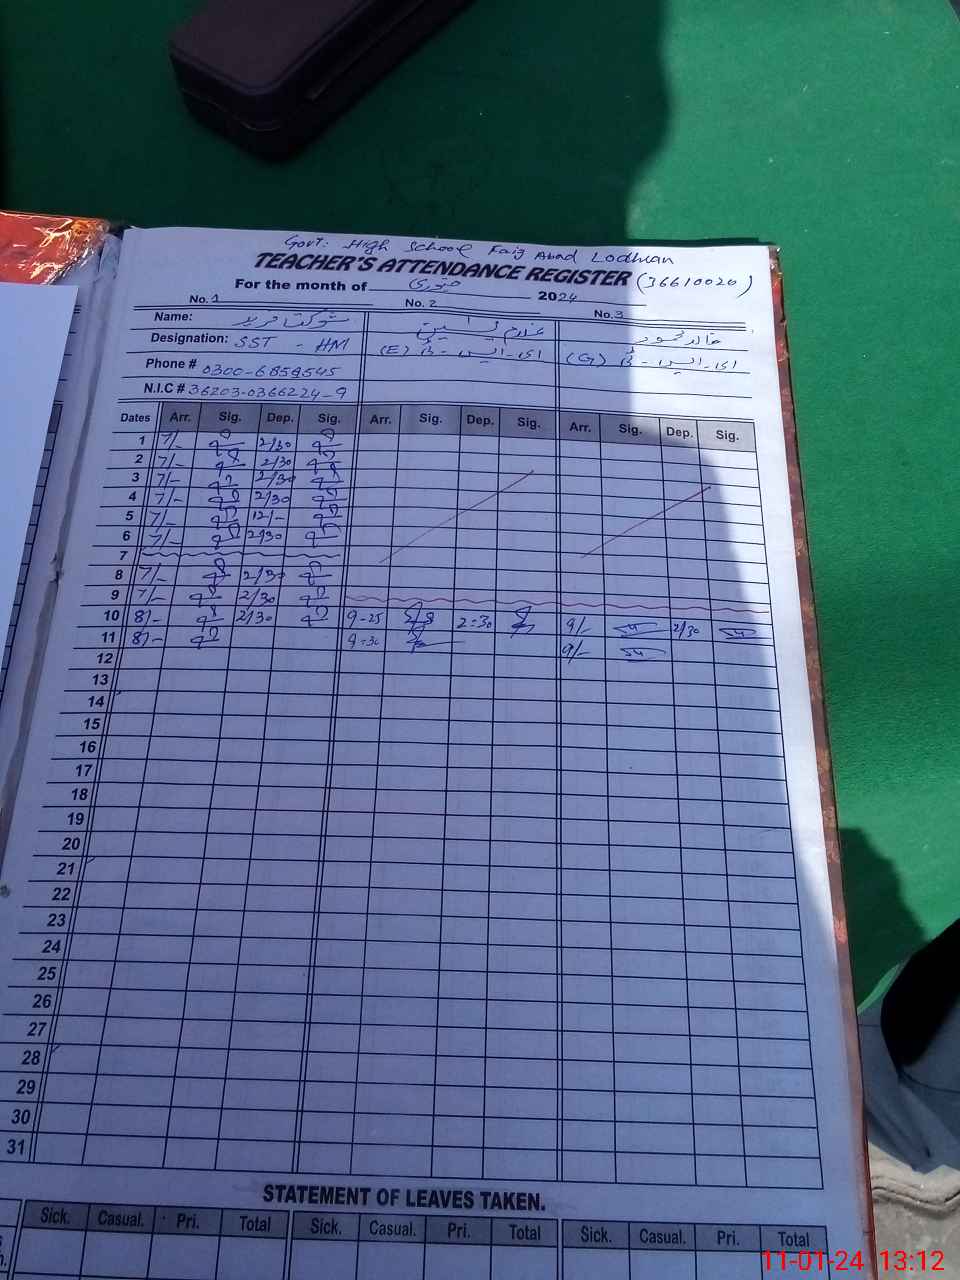 Govt: High School Faiz Abad Lodhran
TEACHER'S ATTENDANCE REGISTER (36610020)
For the month of جنوری 2024
No. 1 No. 2 No. 3
Name: شوکت فرید غلام یٰسین خالد محمود
Designation: SST - HM ای-ایس-ٹی (E) ای-ایس-ٹی (G)
Phone # 0300-6858545
N.I.C # 36203-0366224-9
Dates Arr. Sig. Dep. Sig. Arr. Sig. Dep. Sig. Arr. Sig. Dep. Sig.
1 7/- 2/30
2 7/- 2/30
3 7/- 2/30
4 7/- 2/30
5 7/- 12/-
6 7/- 2/30
7
8 7/- 2/30
9 7/- 2/30
10 8/- 2/30 9-25 2=30 9/- 2/30
11 8/- 9=30 9/-
12
13
14
15
16
17
18
19
20
21
22
23
24
25
26
27
28
29
30
31
STATEMENT OF LEAVES TAKEN.
Sick. Casual. Pri. Total Sick. Casual. Pri. Total Sick. Casual. Pri. Total
11-01-24 13:12